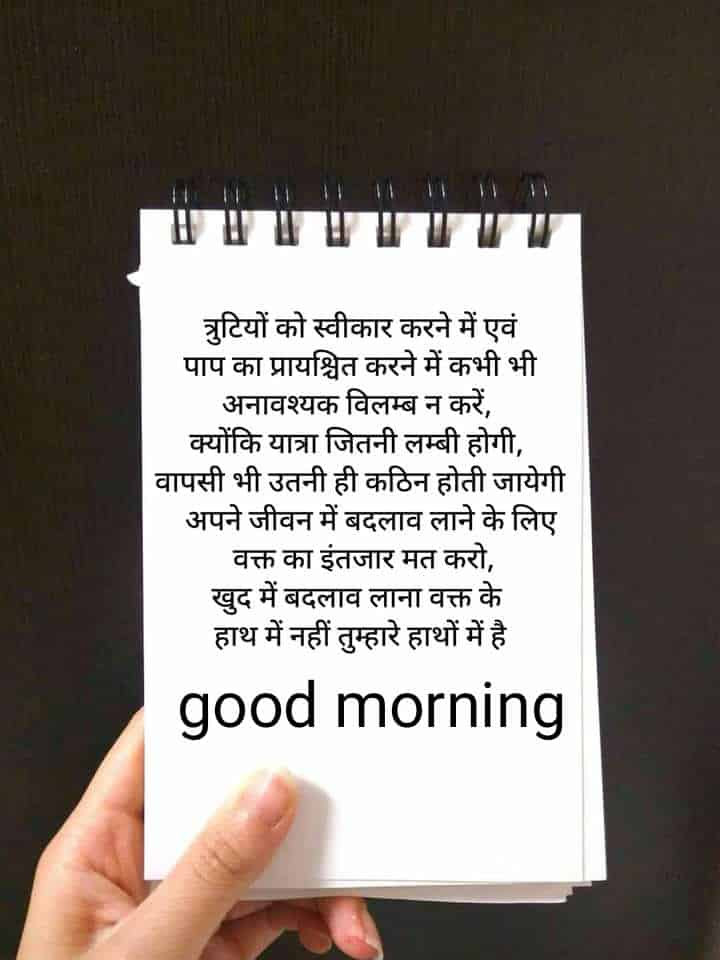 त्रुटियों को स्वीकार करने में एवं
पाप का प्रायश्चित करने में कभी भी
अनावश्यक विलम्ब न करें,
क्योंकि यात्रा जितनी लम्बी होगी,
वापसी भी उतनी ही कठिन होती जायेगी
अपने जीवन में बदलाव लाने के लिए
वक्त का इंतजार मत करो,
खुद में बदलाव लाना वक्त के
हाथ में नहीं तुम्हारे हाथों में है
good morning